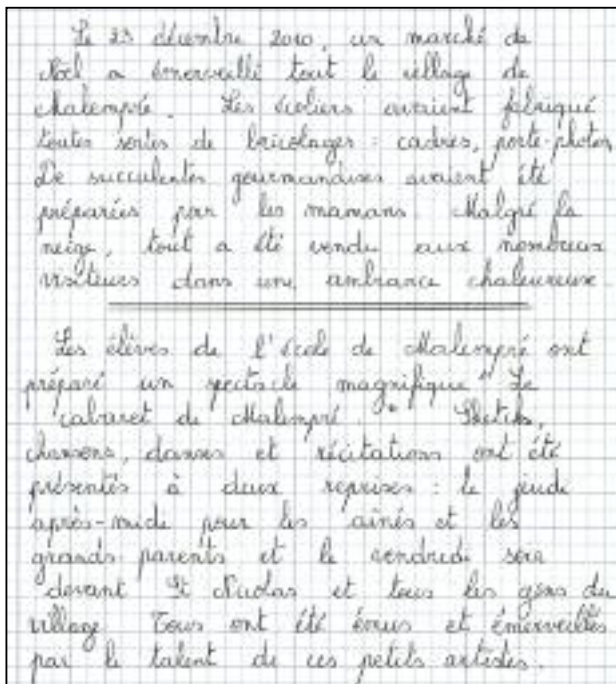 Le 23 décembre 2010, un marché de
Noël a émerveillé tout le village de
Malempré. Les écoliers avaient fabriqué
toutes sortes de bricolages : cadres, porte-photos,
De succulentes gourmandises avaient été
préparées par les mamans. Malgré la
neige, tout a été vendu aux nombreux
visiteurs dans une ambiance chaleureuse
Les élèves de l'école de Malempré ont
préparé un spectacle magnifique " Le
cabaret de Malempré. " Sketchs,
chansons, danses et récitations ont été
présentés à deux reprises : le jeudi
après-midi pour les aînés et les
grands-parents et le vendredi soir
devant St Nicolas et tous les gens du
village. Tous ont été émus et émerveillés
par le talent de ces petits artistes.